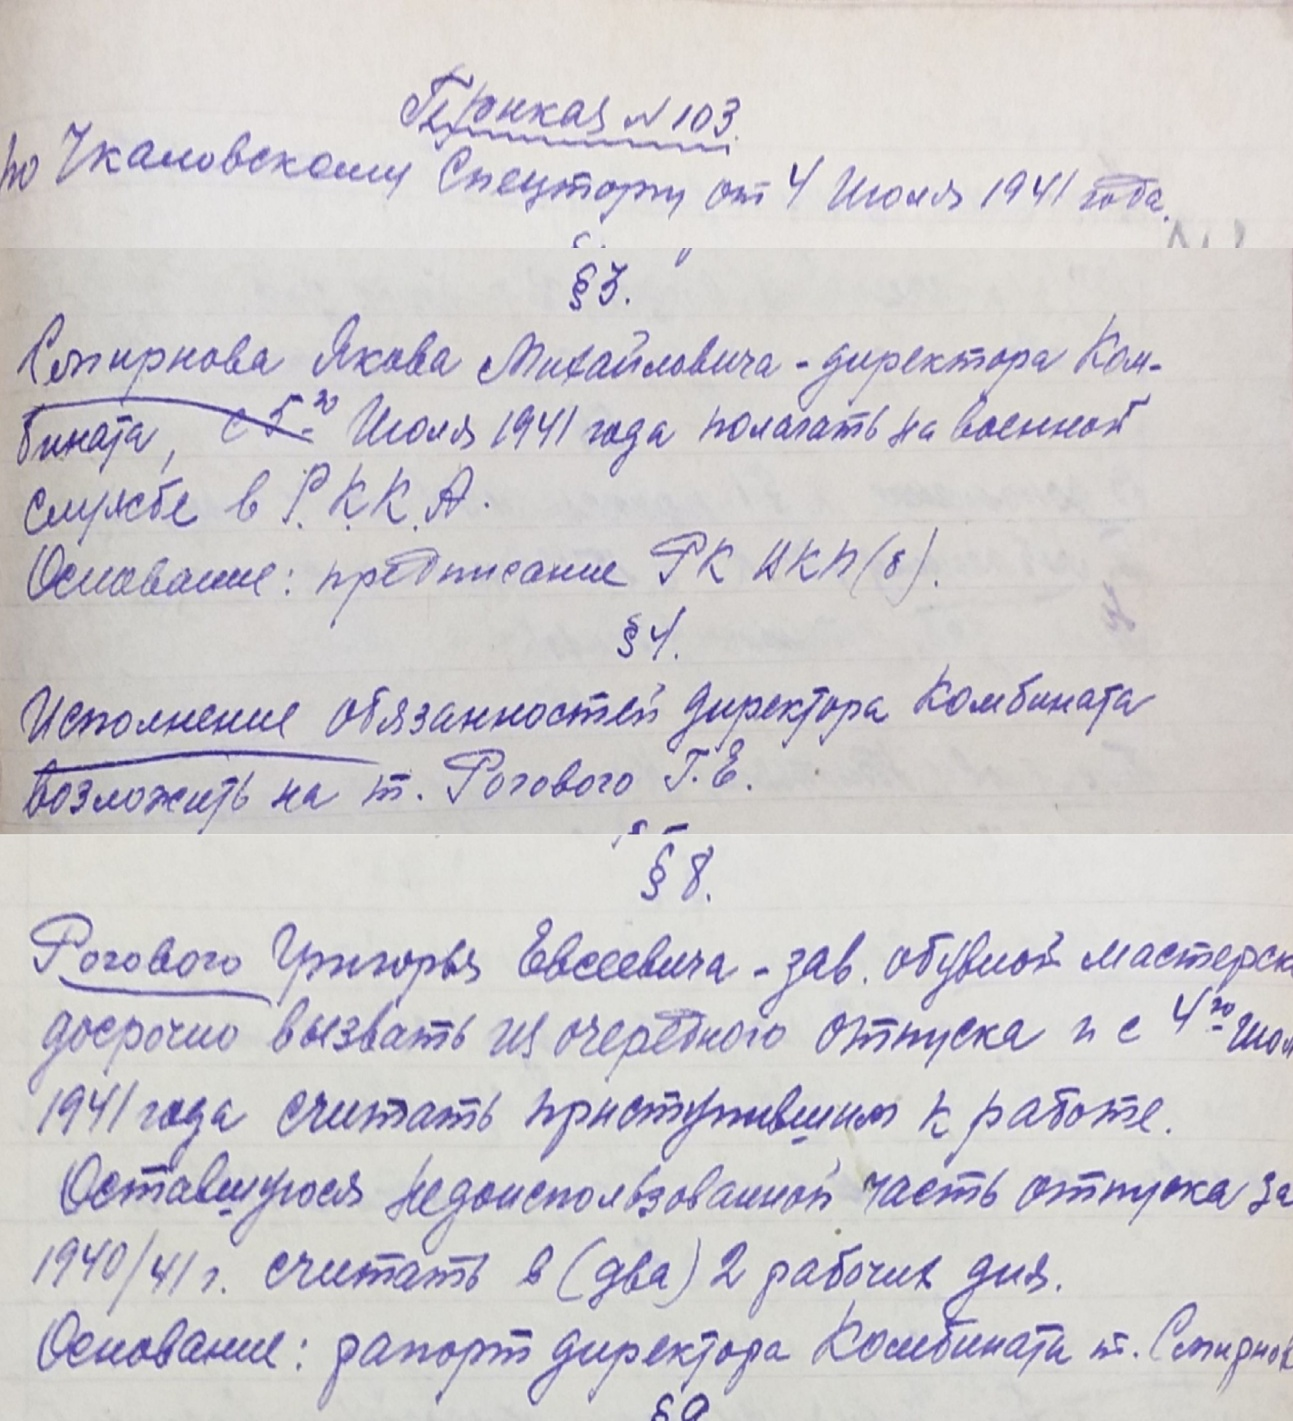 Приказ № 103.
по Чкаловскому Спецторгу от 4 Июля 1941 года.
§ 3.
Смирнова Якова Михайловича - директора Ком-
бината, с 5го Июля 1941 года полагать на военной
службе в Р.К.К.А.
Основание: предписание РК ВКП(б).
§ 4.
Исполнение обязанностей директора Комбината
возложить на т. Рогового Г.Е.
§ 8.
Рогового Григорья Евсеевича - зав. обувной мастерск
досрочно вызвать из очередного отпуска и с 4го Июл
1941 года считать приступившим к работе.
Оставшуюся недоиспользованной часть отпуска за
1940/41 г. считать в (два) 2 рабочих дня.
Основание: рапорт директора Комбината т. Смирнов
§ 9